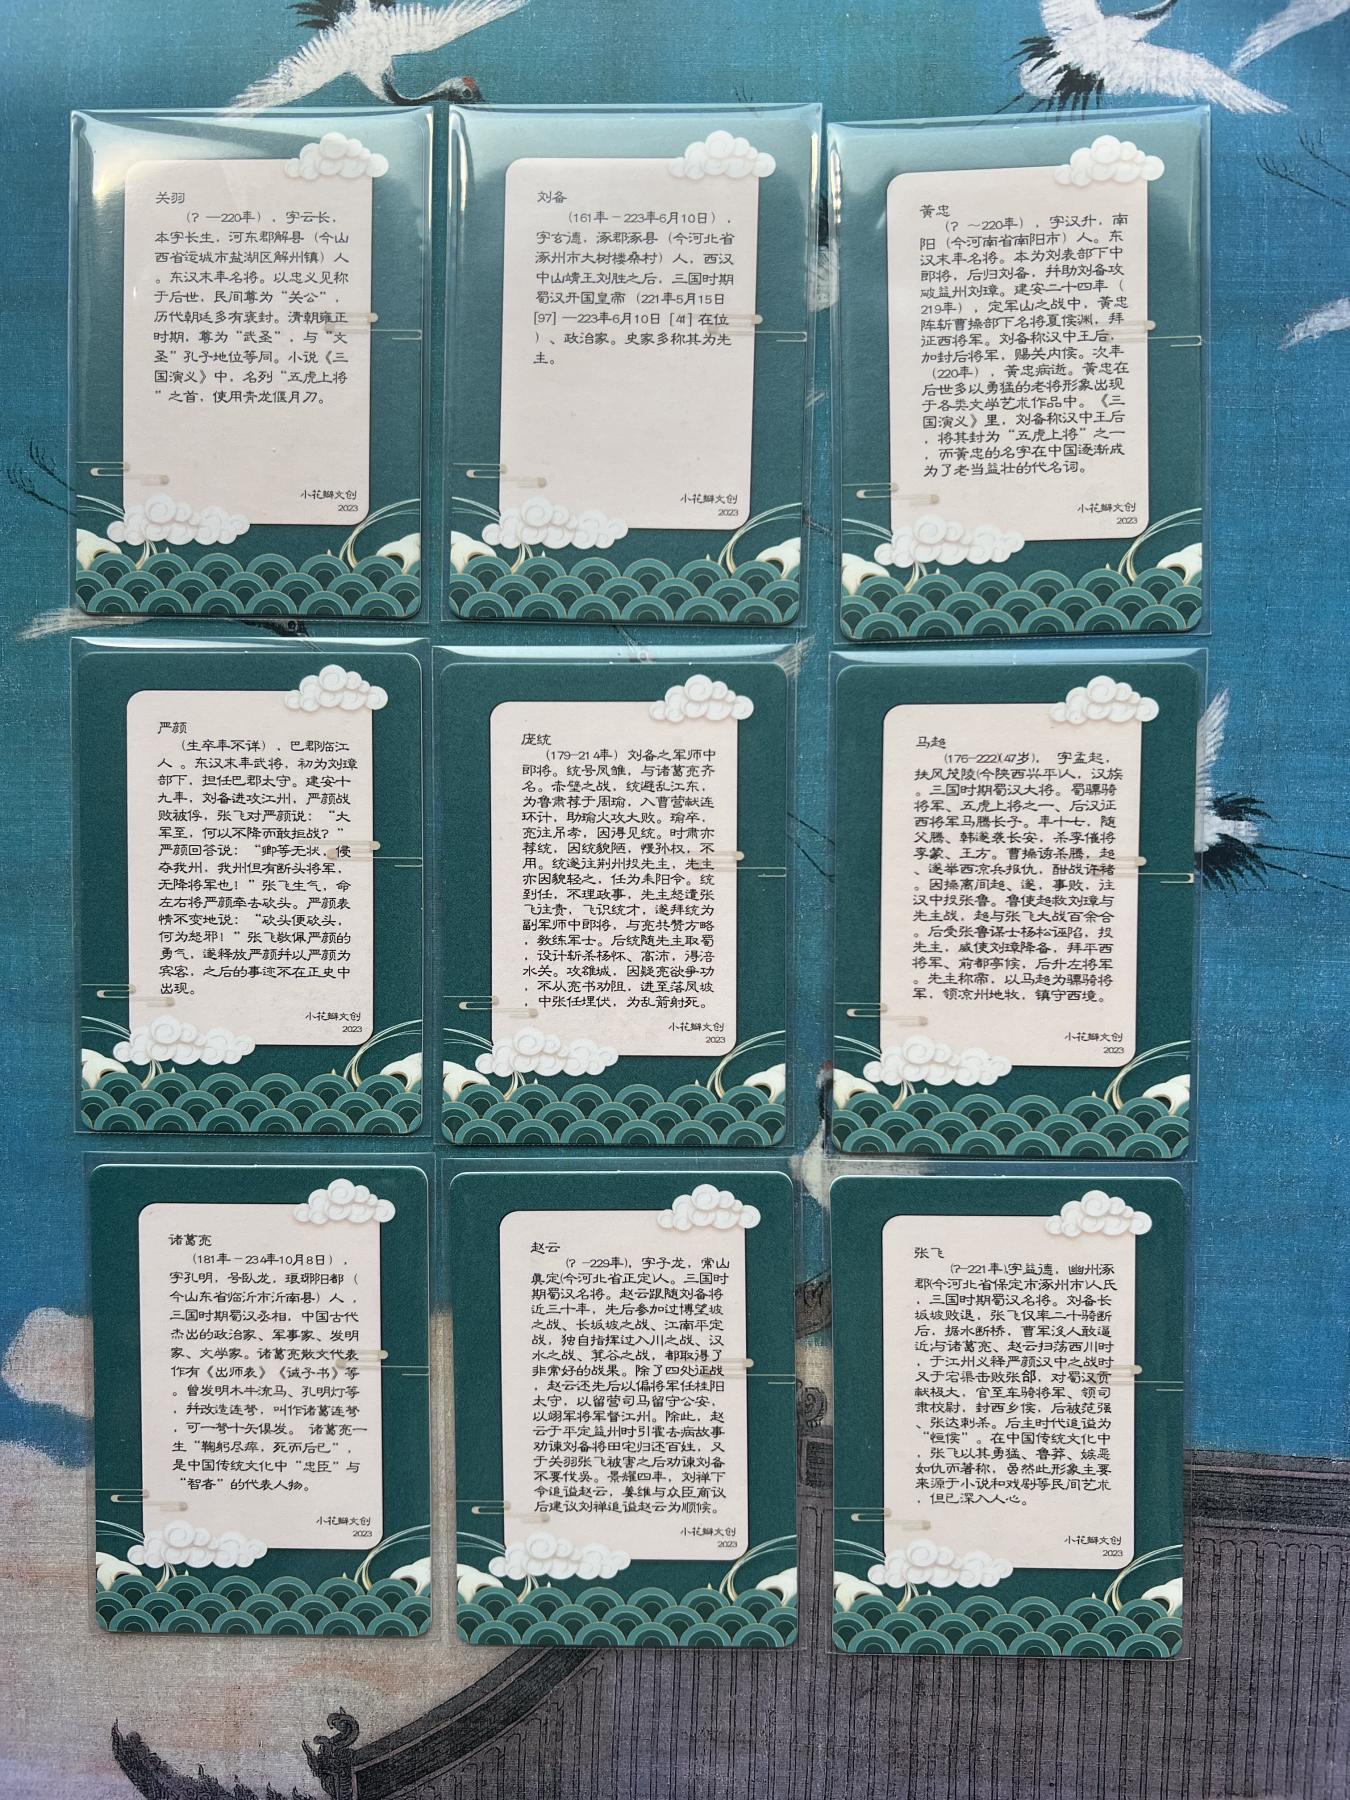 关羽
（？—220年），字云长，
本字长生，河东郡解县（今山
西省运城市盐湖区解州镇）人
。东汉末年名将。以忠义见称
于后世，民间尊为“关公”，
历代朝廷多有褒封。清朝雍正
时期，尊为“武圣”，与“文
圣”孔子地位等同。小说《三
国演义》中，名列“五虎上将
”之首，使用青龙偃月刀。
小花瓣文创
2023
刘备
（161年－223年6月10日），
字玄德，涿郡涿县（今河北省
涿州市大树楼桑村）人，西汉
中山靖王刘胜之后，三国时期
蜀汉开国皇帝（221年5月15日
[97]—223年6月10日[41]在位
）、政治家。史家多称其为先
主。
小花瓣文创
2023
黄忠
（？～220年），字汉升，南
阳（今河南省南阳市）人。东
汉末年名将。本为刘表部下中
郎将，后归刘备，并助刘备攻
破益州刘璋。建安二十四年（
219年），定军山之战中，黄忠
阵斩曹操部下名将夏侯渊，拜
征西将军。刘备称汉中王后，
加封后将军，赐关内侯。次年
（220年），黄忠病逝。黄忠在
后世多以勇猛的老将形象出现
于各类文学艺术作品中。《三
国演义》里，刘备称汉中王后
，将其封为“五虎上将”之一
，而黄忠的名字在中国逐渐成
为了老当益壮的代名词。
小花瓣文创
2023
严颜
（生卒年不详），巴郡临江
人 。东汉末年武将，初为刘璋
部下，担任巴郡太守。建安十
九年，刘备进攻江州，严颜战
败被俘，张飞对严颜说：“大
军至，何以不降而敢拒战？”
严颜回答说：“卿等无状，侵
夺我州，我州但有断头将军，
无降将军也！”张飞生气，命
左右将严颜牵去砍头。严颜表
情不变地说：“砍头便砍头，
何为怒邪！”张飞敬佩严颜的
勇气，遂释放严颜并以严颜为
宾客，之后的事迹不在正史中
出现。
小花瓣文创
2023
庞统
（179—214年）刘备之军师中
郎将。统号凤雏，与诸葛亮齐
名。赤壁之战，统避乱江东，
为鲁肃荐于周瑜，入曹营献连
环计，助瑜火攻大败。瑜卒，
亮往吊孝，因得见统。时肃亦
荐统，因统貌陋，慢孙权，不
用。统遂往荆州投先主，先主
亦因貌轻之，任为耒阳令。统
到任，不理政事，先主怒遣张
飞往责，飞识统才，遂拜统为
副军师中郎将，与亮共赞方略
，教练军士。后统随先主取蜀
，设计斩杀杨怀、高沛，得涪
水关。攻雒城，因疑亮欲争功
，不从亮书劝阻，进至落凤坡
，中张任埋伏，为乱箭射死。
小花瓣文创
2023
马超
（176-222）（47岁）， 字孟起，
扶风茂陵（今陕西兴平）人，汉族
。三国时期蜀汉大将。蜀骠骑
将军、五虎上将之一、后汉征
西将军马腾长子。年十七，随
父腾、韩遂袭长安，杀李傕将
李蒙、王方。曹操诱杀腾，超
、遂举西凉兵报仇，酣战许褚
。因操离间超、遂，事败，往
汉中投张鲁。鲁使超救刘璋与
先主战，超与张飞大战百余合
。后受张鲁谋士杨松诬陷，投
先主，威使刘璋降备，拜平西
将军、前都亭侯，后升左将军
。先主称帝，以马超为骠骑将
军，领凉州地牧，镇守西境。
小花瓣文创
2023
诸葛亮
（181年－234年10月8日），
字孔明，号卧龙，琅琊阳都（
今山东省临沂市沂南县）人，
三国时期蜀汉丞相，中国古代
杰出的政治家、军事家、发明
家、文学家。诸葛亮散文代表
作有《出师表》《诫子书》等
。曾发明木牛流马、孔明灯等
，并改造连弩，叫作诸葛连弩
，可一弩十矢俱发。 诸葛亮一
生“鞠躬尽瘁，死而后已”，
是中国传统文化中“忠臣”与
“智者”的代表人物。
小花瓣文创
2023
赵云
（？－229年），字子龙，常山
真定（今河北省正定）人。三国时
期蜀汉名将。赵云跟随刘备将
近三十年，先后参加过博望坡
之战、长坂坡之战、江南平定
战，独自指挥过入川之战、汉
水之战、箕谷之战，都取得了
非常好的战果。除了四处征战
，赵云还先后以偏将军任桂阳
太守，以留营司马留守公安，
以翊军将军督江州。除此，赵
云于平定益州时引霍去病故事
劝谏刘备将田宅归还百姓，又
于关羽张飞被害之后劝谏刘备
不要伐吴。景耀四年，刘禅下
令追谥赵云，姜维与众臣商议
后建议刘禅追谥赵云为顺侯。
小花瓣文创
2023
张飞
（？-221年）字益德，幽州涿
郡（今河北省保定市涿州市）人氏
，三国时期蜀汉名将。刘备长
坂坡败退，张飞仅率二十骑断
后，据水断桥，曹军没人敢逼
近；与诸葛亮、赵云扫荡西川时
，于江州义释严颜汉中之战时
又于宕渠击败张郃，对蜀汉贡
献极大，官至车骑将军、领司
隶校尉，封西乡侯，后被范强
、张达刺杀。后主时代追谥为
“恒侯”。在中国传统文化中
，张飞以其勇猛、鲁莽、嫉恶
如仇而著称，虽然此形象主要
来源于小说和戏剧等民间艺术
，但已深入人心。
小花瓣文创
2023